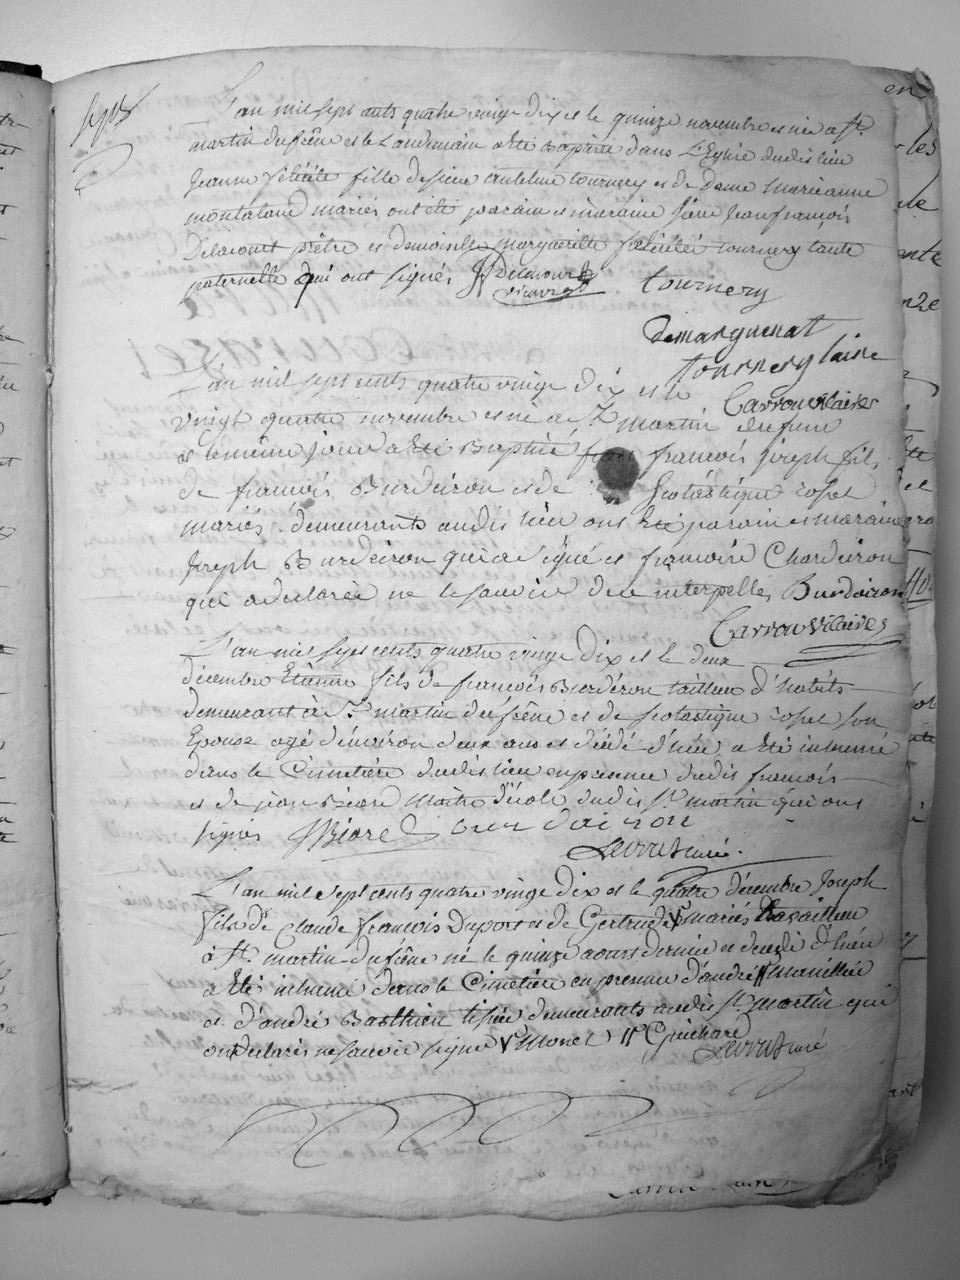 sept
L'an mil sept cents quatre vingt dix et le quinze novembre est née a St
martin dufrêne et le Landemain a été Baptisée dans L'Eglise dudit lieu
Jeanne félicité fille de sieur antelme tournery et de Dame marieanne
mariés ont été parain et maraine sieur Jean françois
Delacourt prêtre et demoiselle marguerite félicité tournery tante
paternelle qui ont signés Delacourt
vicaire tournery
tournery
Carron vicaire
L'an mil sept cents quatre vingt dix et le
vingt quatre novembre est né a St martin dufrene
et le même jour a été Baptisé françois joseph fils
de françois Burdeiron et de Scolastique
mariés demeurants audit lieu ont été parain et maraine
joseph Burdeiron qui a signé et françoise
qui a declarée ne le savoir de ce interpellée Burdairon
Carron vicaire
L'an mil sept cents quatre vingt dix et le deux
décembre Etienne fils de françois Burdéron tailleur d'habits
demeurant à St martin dufrêne et de scolastique son
Epouse agé d'environ deux ans et décédé d'hier a été inhumé
dans le Cimetière dudit lieu en presence dudit françois
et de jean Béard Maître d'école dudit St martin qui ont
signés Béard burdairon
curé.
L'an mil sept cents quatre vingt dix et le quatre décembre Joseph
fils de Claude françois Duport et de Gertrude V mariés
à St. martin-dufrêne né le quinze aoust dernier et décédé d'hier
a été inhumé dans le Cimetière en presence d'andré
et d'andré Basthien demeurants audit St martin qui
ont declarés ne savoir signer V Monet Guichard
curé